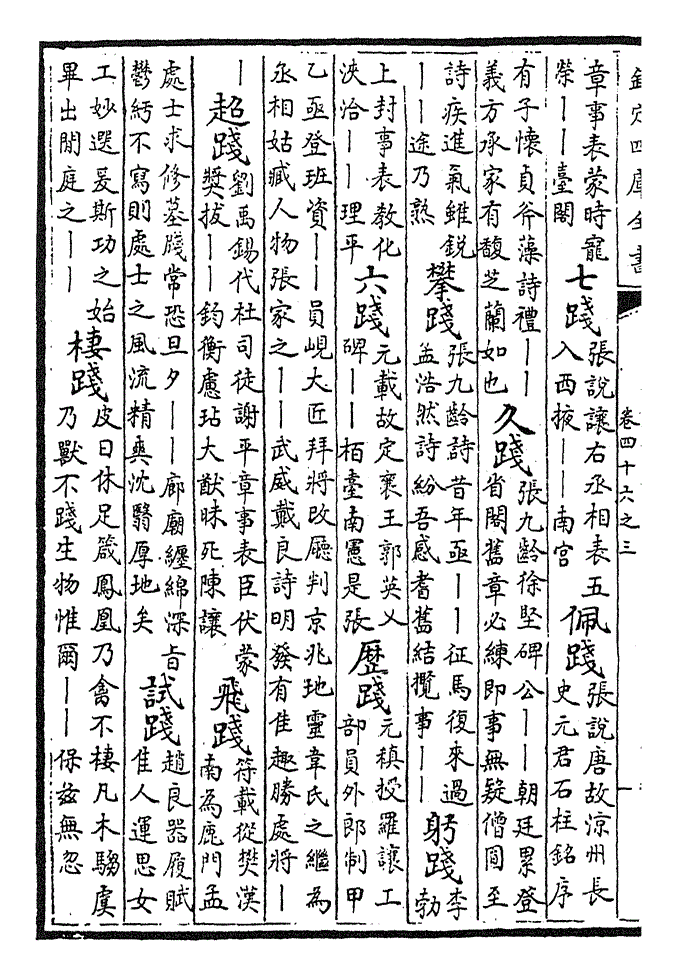 欽定四庫全書
卷四十六之三
章事表蒙時寵
榮——臺閣
七踐
張說讓右丞相表五
入西掖——南宫
佩踐
張說唐故涼州長
史元君石柱銘序
有子懷貞斧藻詩禮——
義方承家有馥芝蘭如也
久踐
張九齡徐堅碑公——朝廷累登
省閣舊章必練即事無疑僧圓至
詩疾進氣雖銳
——途乃熟
攀踐
張九齡詩昔年亟——征馬復來過
孟浩然詩紛吾感耆舊結攬事——
躬踐
李
勃
上封事表敎化
浹洽——理平
六踐
元載故定襄王郭英乂
碑——栢臺南憲是張
歴踐
元稹授羅讓工
部員外郎制甲
乙亟登班資——員峴大匠拜將改廳判京兆地靈韋氏之繼為
丞相姑臧人物張家之——武威戴良詩明發有佳趣勝處將—
—
超踐
劉禹錫代杜司徒謝平章事表臣伏蒙
奬拔——鈞衡慮玷大猷昧死陳讓
飛踐
符載從樊漢
南為鹿門孟
處士求修墓牋常恐旦夕——廊廟纏綿深旨
鬱紆不寫則處士之風流精爽沈翳厚地矣
試踐
趙良器履賦
佳人運思女
工妙選爰斯功之始
畢出閒庭之——
棲踐
皮日休足箴鳳凰乃禽不棲凡木騶虞
乃獸不踐生物惟爾——保兹無忽